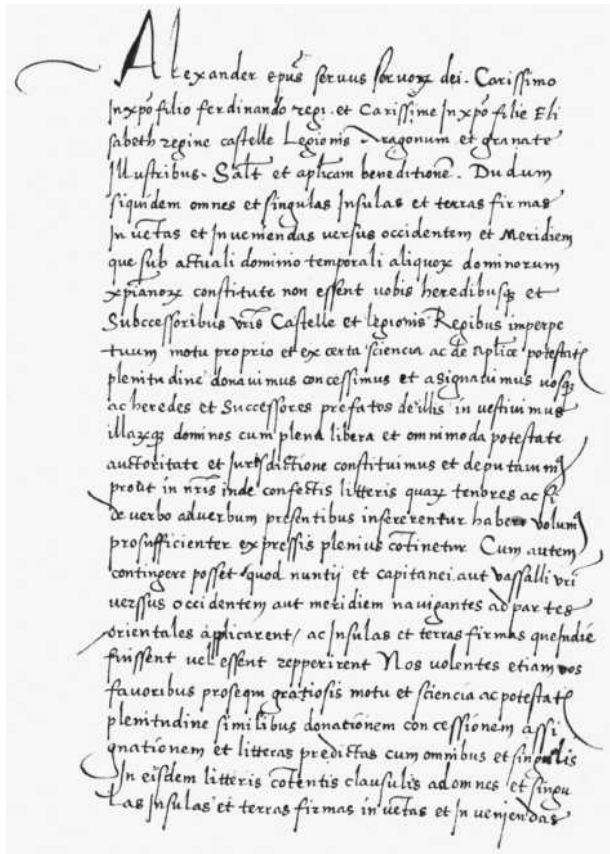 Alexander ep̃us servus servoꝝ dei. Carissimo
In xpo filio ferdinando regi. et Carissime In xpo filie Eli
sabeth regine castelle Legionis Aragonum et granate
Illustribus. Salt̃ et aplicam beneditionẽ. Du dum
siquidem omnes et singulas Insulas et terras firmas
In uẽtas et Inueniendas versus occidentem et Meridiem
que sub actuali dominio temporali aliquoꝝ dominorum
xpianoꝝ constitute non essent uobis heredibusqꝫ et
Subccessoribus vrĩs Castelle et legionis Regibus imperpe
tuum motu proprio et ex certa sciencia ac de aplice potestatꝭ
plenitudine donauimus concessimus et asignauimus uosqꝫ
ac heredes et Successores prefatos de illis in vestiuimus
illaꝝqꝫ dominos cum plena libera et omnimoda potestate
auctoritate et Jurisdictione constituimus et deputauimꝰ
prout in nrĩs inde confectis litteris quaꝝ tenores ac si
de verbo aduerbum presentibus insererentur habere volumꝰ
prosufficienter expressis plenius cõtinetur Cum autem
contingere posset quod nuntij et capitanei aut vassalli vrĩ
verssus occidentem aut meridiem nauigantes ad partes
orientales applicarent/ ac Insulas et terras firmas que Indie
fuissent uel essent repperirent Nos volentes etiam vos
fauoribus prosequi gratiosis motu et sciencia ac potestatꝭ
plenitudine similibus donationem concessionem assi
gnationem et litteras predictas cum omnibus et singulis
In eisdem litteris cõtentis clausulis ad omnes et singu
las Insulas et terras firmas in uẽtas et In veniendas